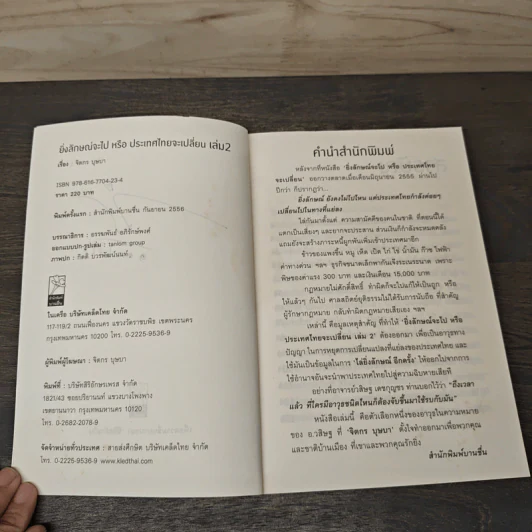 ยิ่งลักษณ์จะไป หรือ ประเทศไทยจะเปลี่ยน เล่ม2
เรื่อง : จิตกร บุษบา
ISBN 978-616-7704-23-4
ราคา 220 บาท
พิมพ์ครั้งแรก : สำนักพิมพ์บานชื่น กันยายน 2556
บรรณาธิการ : อรรมพันธ์ อภิรักษ์พงศ์
ออกแบบปก-รูปเล่ม : taniom group
ภาพปก : กิตติ บวรพัฒน์นนท์
สำนักพิมพ์
บานชื่น
ในเครือ บริษัทเคล็ดไทย จำกัด
117-119/2 ถนนเฟื่องนคร แขวงวัดราชบพิธ เขตพระนคร
กรุงเทพมหานคร 10200 โทร. 0-2225-9536-9
ผู้พิมพ์ผู้โฆษณา : จิตกร บุษบา
พิมพ์ที่ : บริษัทสิริอักษรเพรส จำกัด
1821/43 ซอยเจริญ แขวงบางโพงพาง
เขตยานนาวา กรุงเทพมหานคร 10120
โทร. 0-2682-2078-9
จัดจำหน่ายทั่วประเทศ : สายส่งศึกษิต บริษัทเคล็ดไทย จำกัด
โทร 0-2225-9536-9 www.kledthai.com
คำนำสำนักพิมพ์
หลังจากที่หนังสือ 'ยิ่งลักษณ์จะไป หรือ ประเทศไทย
จะเปลี่ยน' ออกวางตลาดเมื่อเดือนมิถุนายน 2555 ผ่านไป
ปีกว่า ก็ปรากฏว่า...
ยิ่งลักษณ์ ยังคงไม่ไปไหน แต่ประเทศไทยกำลังค่อยๆ
เปลี่ยนไปในทางที่แย่ลง
ไล่กันมาตั้งแต่ ความสามัคคีของคนในชาติ ที่ตอนนี้ได้
แตกเป็นเสี่ยงๆ และยากจะประสาน ส่วนเงินก็กำลังจะหมดคลัง
แถมยังจะสร้างภาระหนี้ผูกพันเพิ่มเข้าประเทศมาอีก
ข้าวของแพงขึ้น หมู เห็ด เป็ด ไก่ ไข่ น้ำมัน ก๊าซ ไฟฟ้า
ค่าทางด่วน ฯลฯ ธุรกิจขนาดเล็กพากันเจ๊งระเนระนาด เพราะ
พิษของค่าแรง 300 บาท และเงินเดือน 15,000 บาท
กฎหมายไม่ศักดิ์สิทธิ์ ทำผิดก็จะไปแก้ให้เป็นถูก หรือ
ให้แล้วๆ กันไป ศาลสถิตย์ยุติธรรมไม่ได้รับการนับถือ ที่สำคัญ
ผู้รักษากฎหมาย กลับทำผิดกฎหมายเสียเอง ฯลฯ
เหล่านี้ คือมูลเหตุสำคัญ ที่ทำให้ 'ยิ่งลักษณ์จะไป หรือ
ประเทศไทยจะเปลี่ยน เล่ม 2' ต้องออกมา เพื่อเป็นอาวุธทาง
ปัญญา ในการหยุดการเปลี่ยนแปลงที่แย่ลงของประเทศไทย และ
ใช้มันเป็นข้อมูลในการ 'ไล่ยิ่งลักษณ์ อีกครั้ง' ให้ออกไปจากการ
ใช้อำนาจอันจะนำพาประเทศไทยไปสู่ความฉิบหายเสียที
อย่างที่อาจารย์วสิษฐ เดชกุญชร ท่านบอกไว้ว่า "ถึงเวลา
แล้ว ที่ใครมีอาวุธชนิดไหนก็ต้องจับขึ้นมาใช้รบกับมัน"
หนังสือเล่มนี้ คือตัวเลือกหนึ่งของอาวุธในความหมาย
ของ อ.วสิษฐ ที่ 'จิตกร บุษบา' ตั้งใจทำออกมาเพื่อพวกคุณ
และชาติบ้านเมือง ที่เขาและพวกคุณรักยิ่ง
สำนักพิมพ์บานชื่น